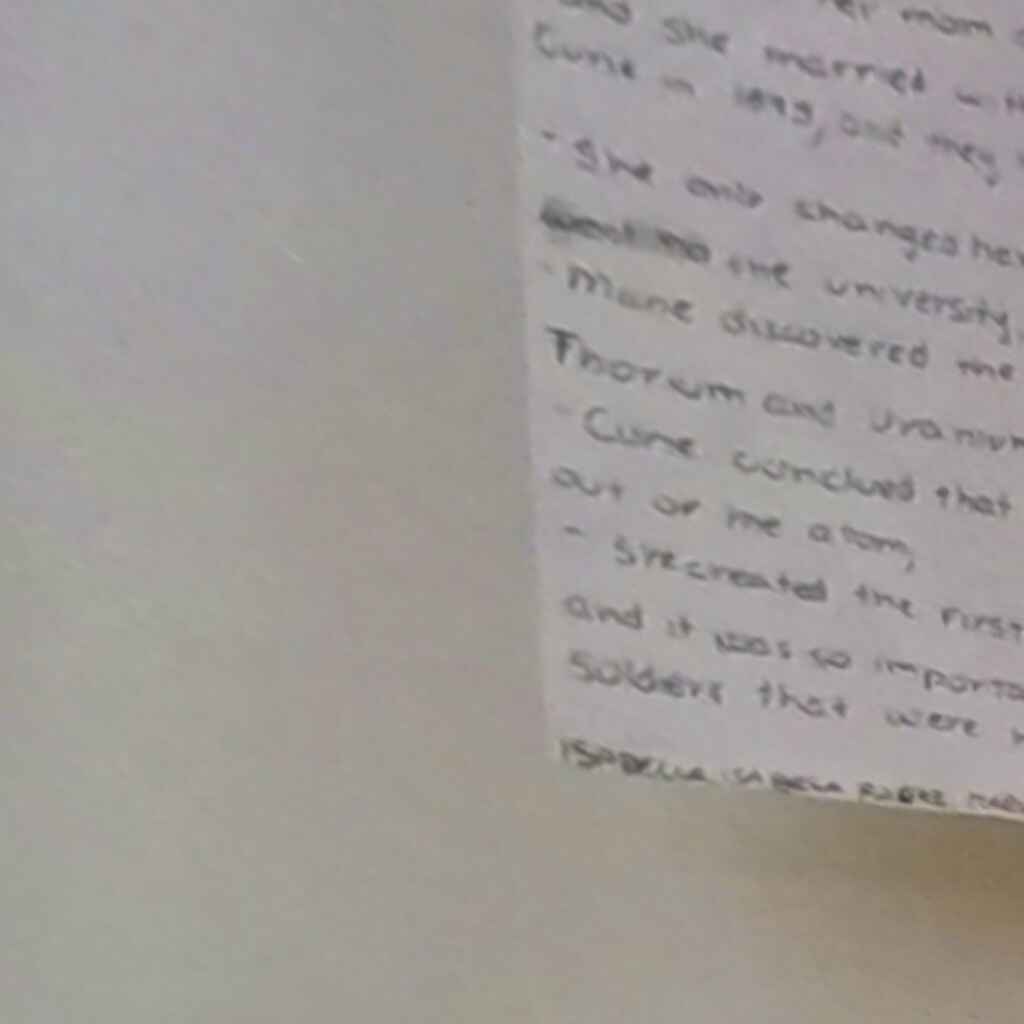 her mom
and she married with
Curie in 1895, and they
- She only changes her
went to the university.
- Marie discovered the
Thorium and Uranium
- Curie conclued that
out of the atom,
- She created the first
and it was so importa
Solders that were
ISABELLA, ISABELA